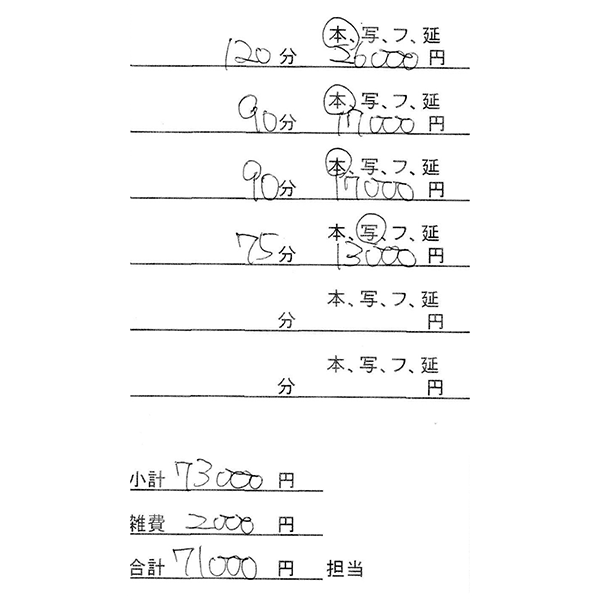 本、写、フ、延
120分 26000円
本、写、フ、延
90分 17000円
本、写、フ、延
90分 17000円
本、写、フ、延
75分 13000円
本、写、フ、延
分 円
本、写、フ、延
分 円
小計 73000 円
雑費 2000 円
合計 71000 円 担当